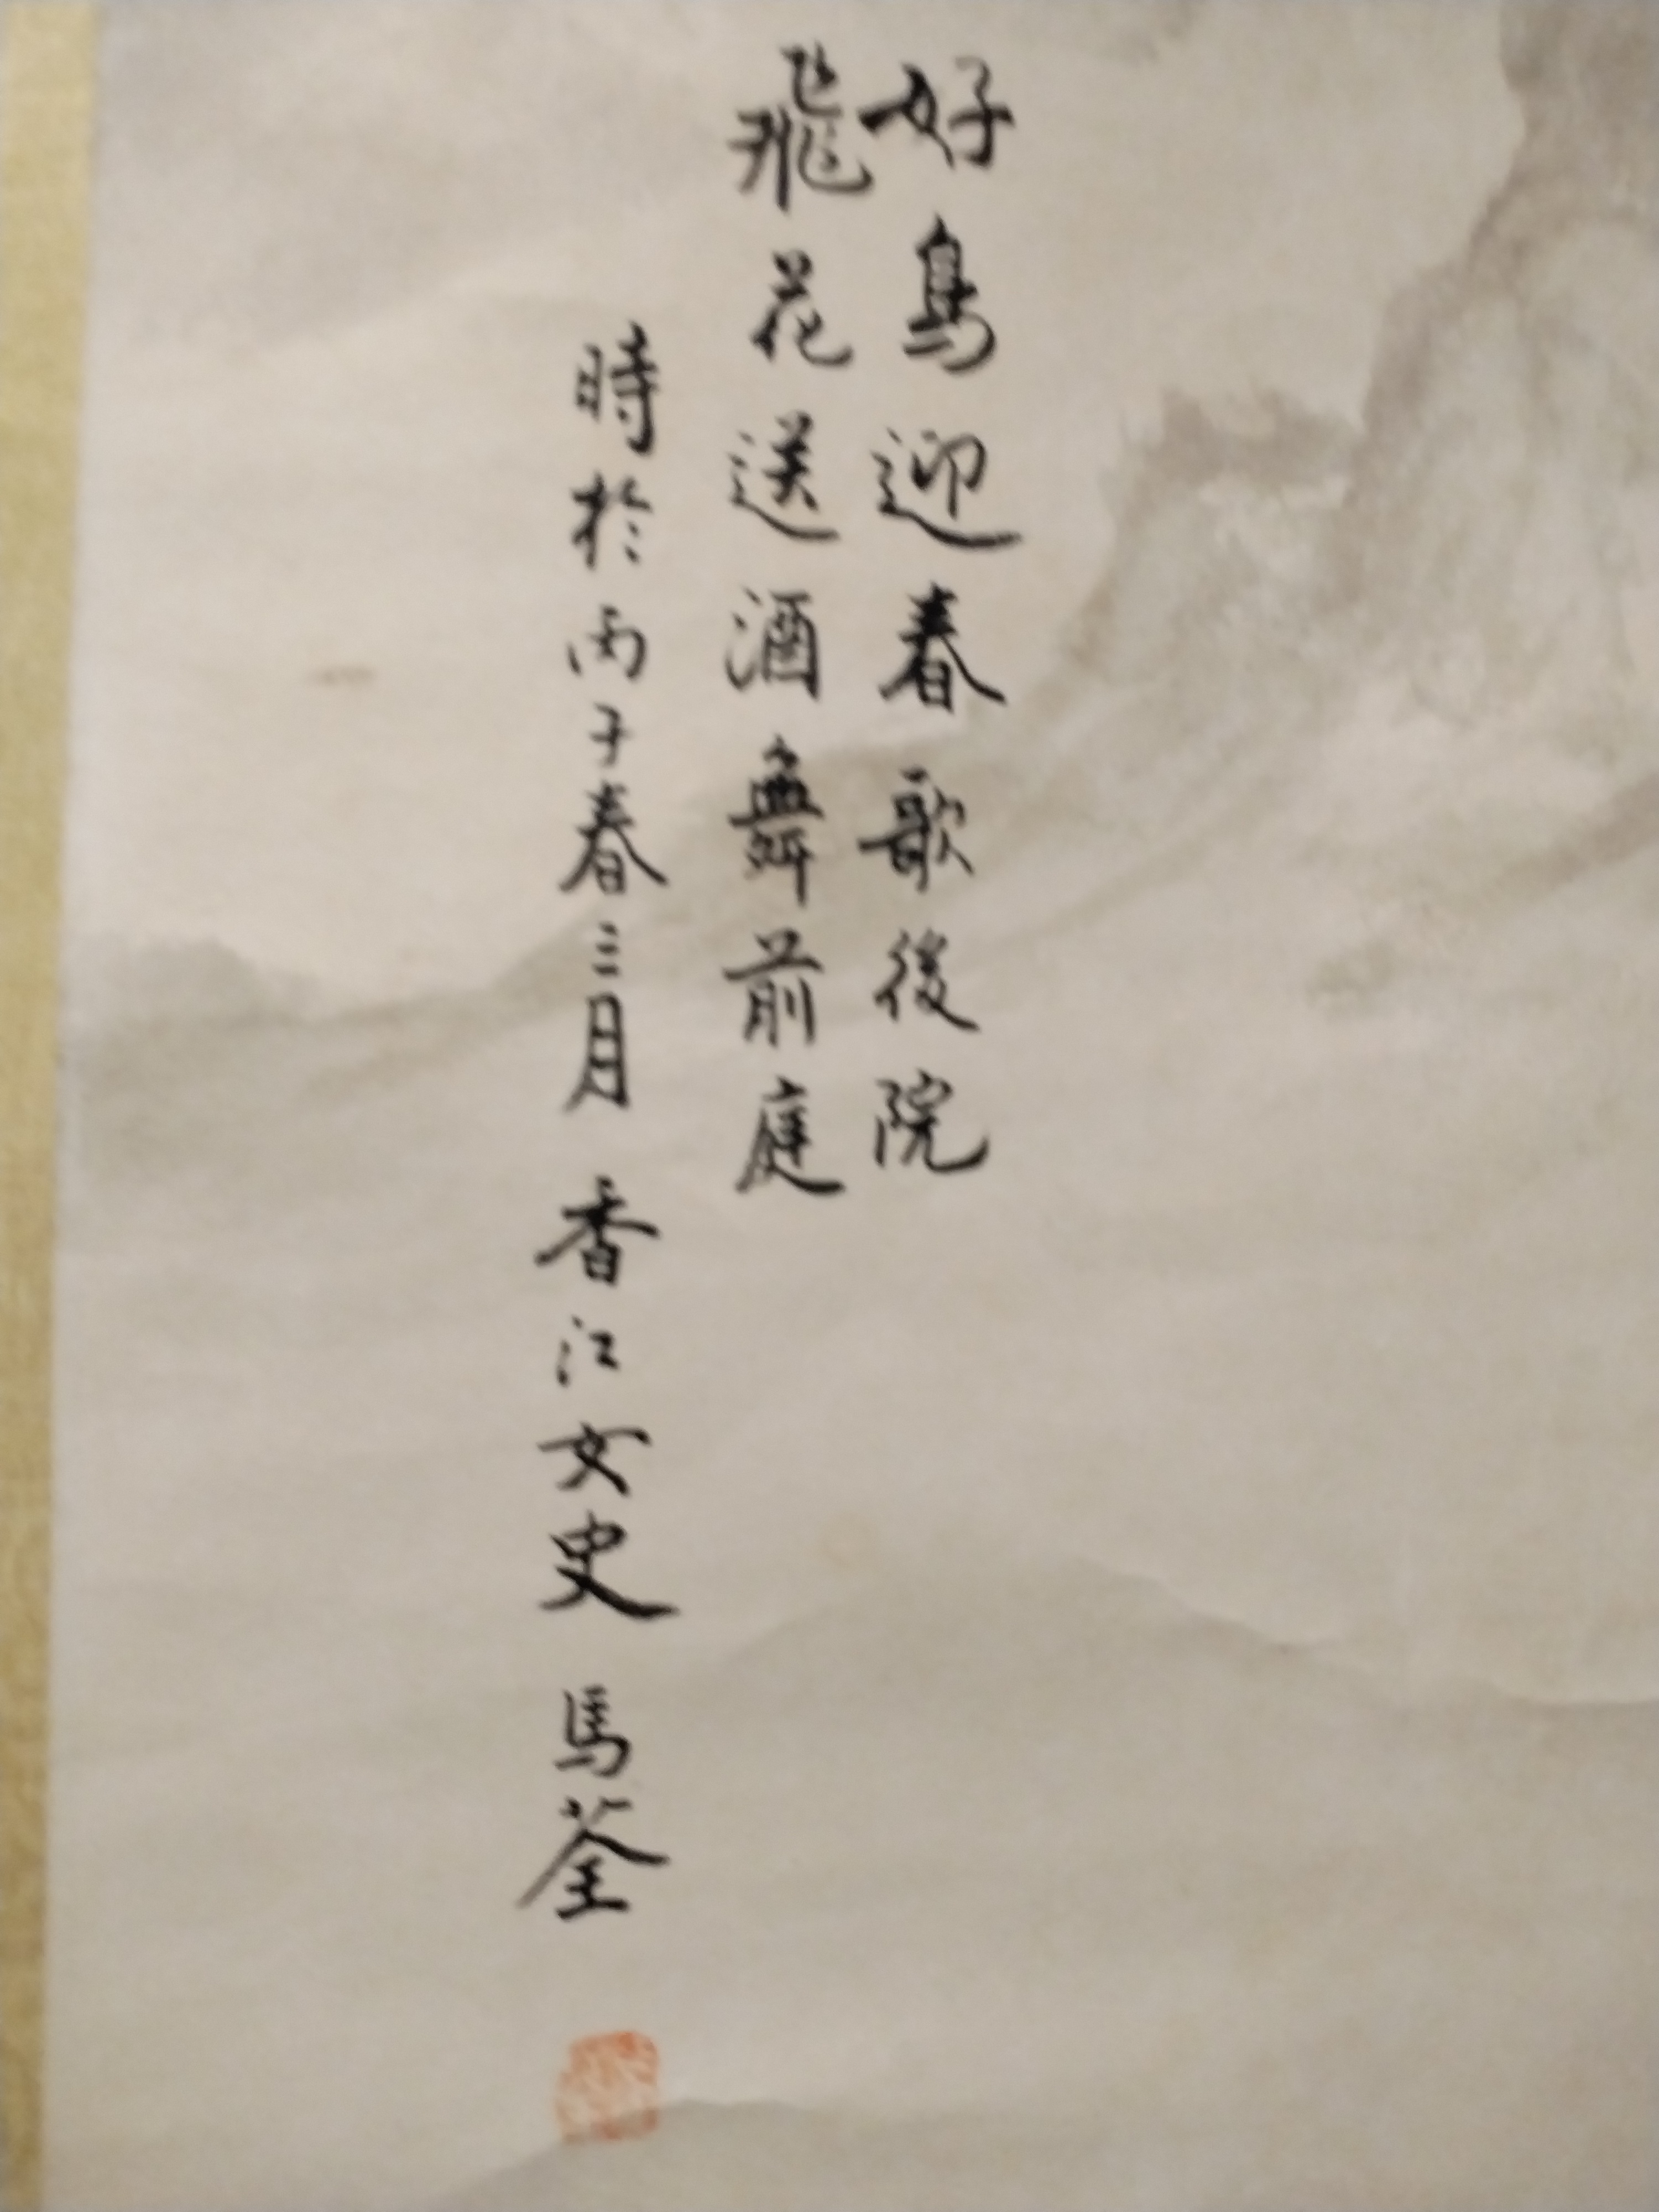 好鳥迎春歌後院
飛花送酒舞前庭
時於丙子春三月 香江女史 馬荃